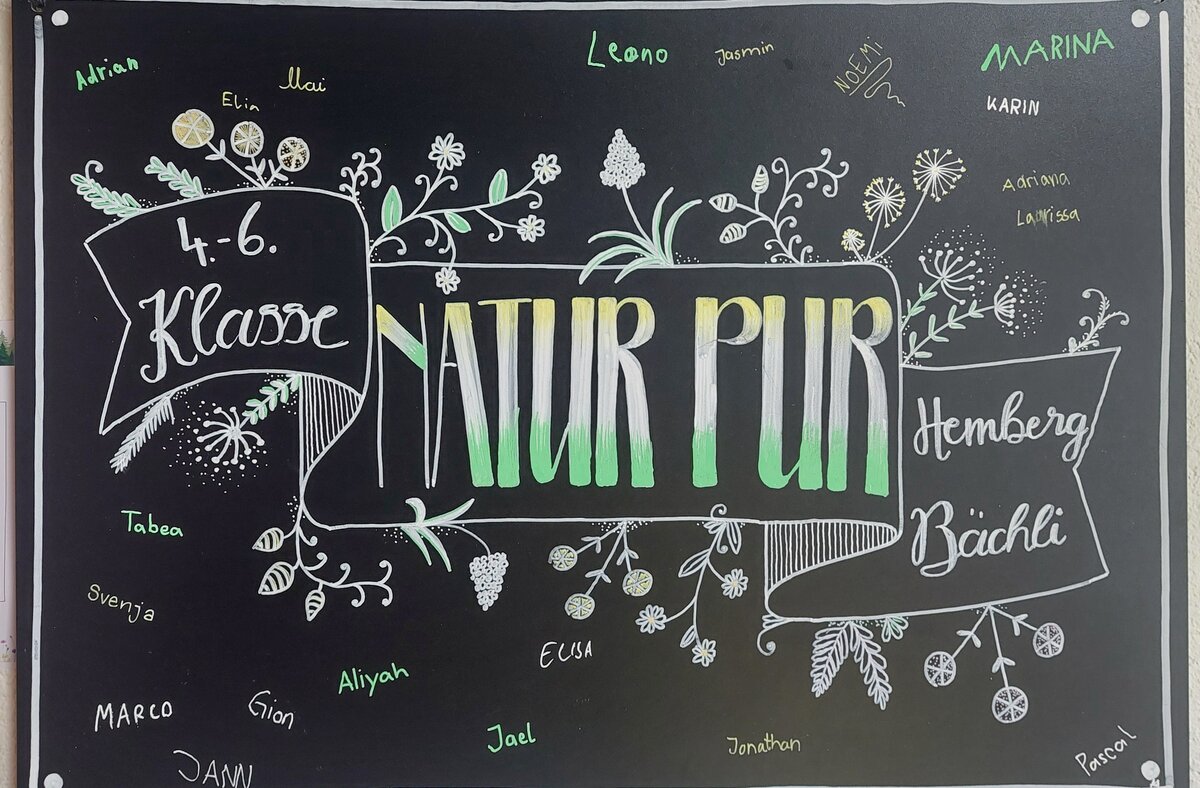 Adrian
Elin
Mai
Leano
Jasmin
NOEMi
MARINA
KARIN
Adriana
Laurissa
4.-6.
Klasse
NATUR PUR
Hemberg
Bächli
Tabea
Svenja
MARCO
Gion
JANN
Aliyah
Jael
ELISA
Jonathan
Pascal